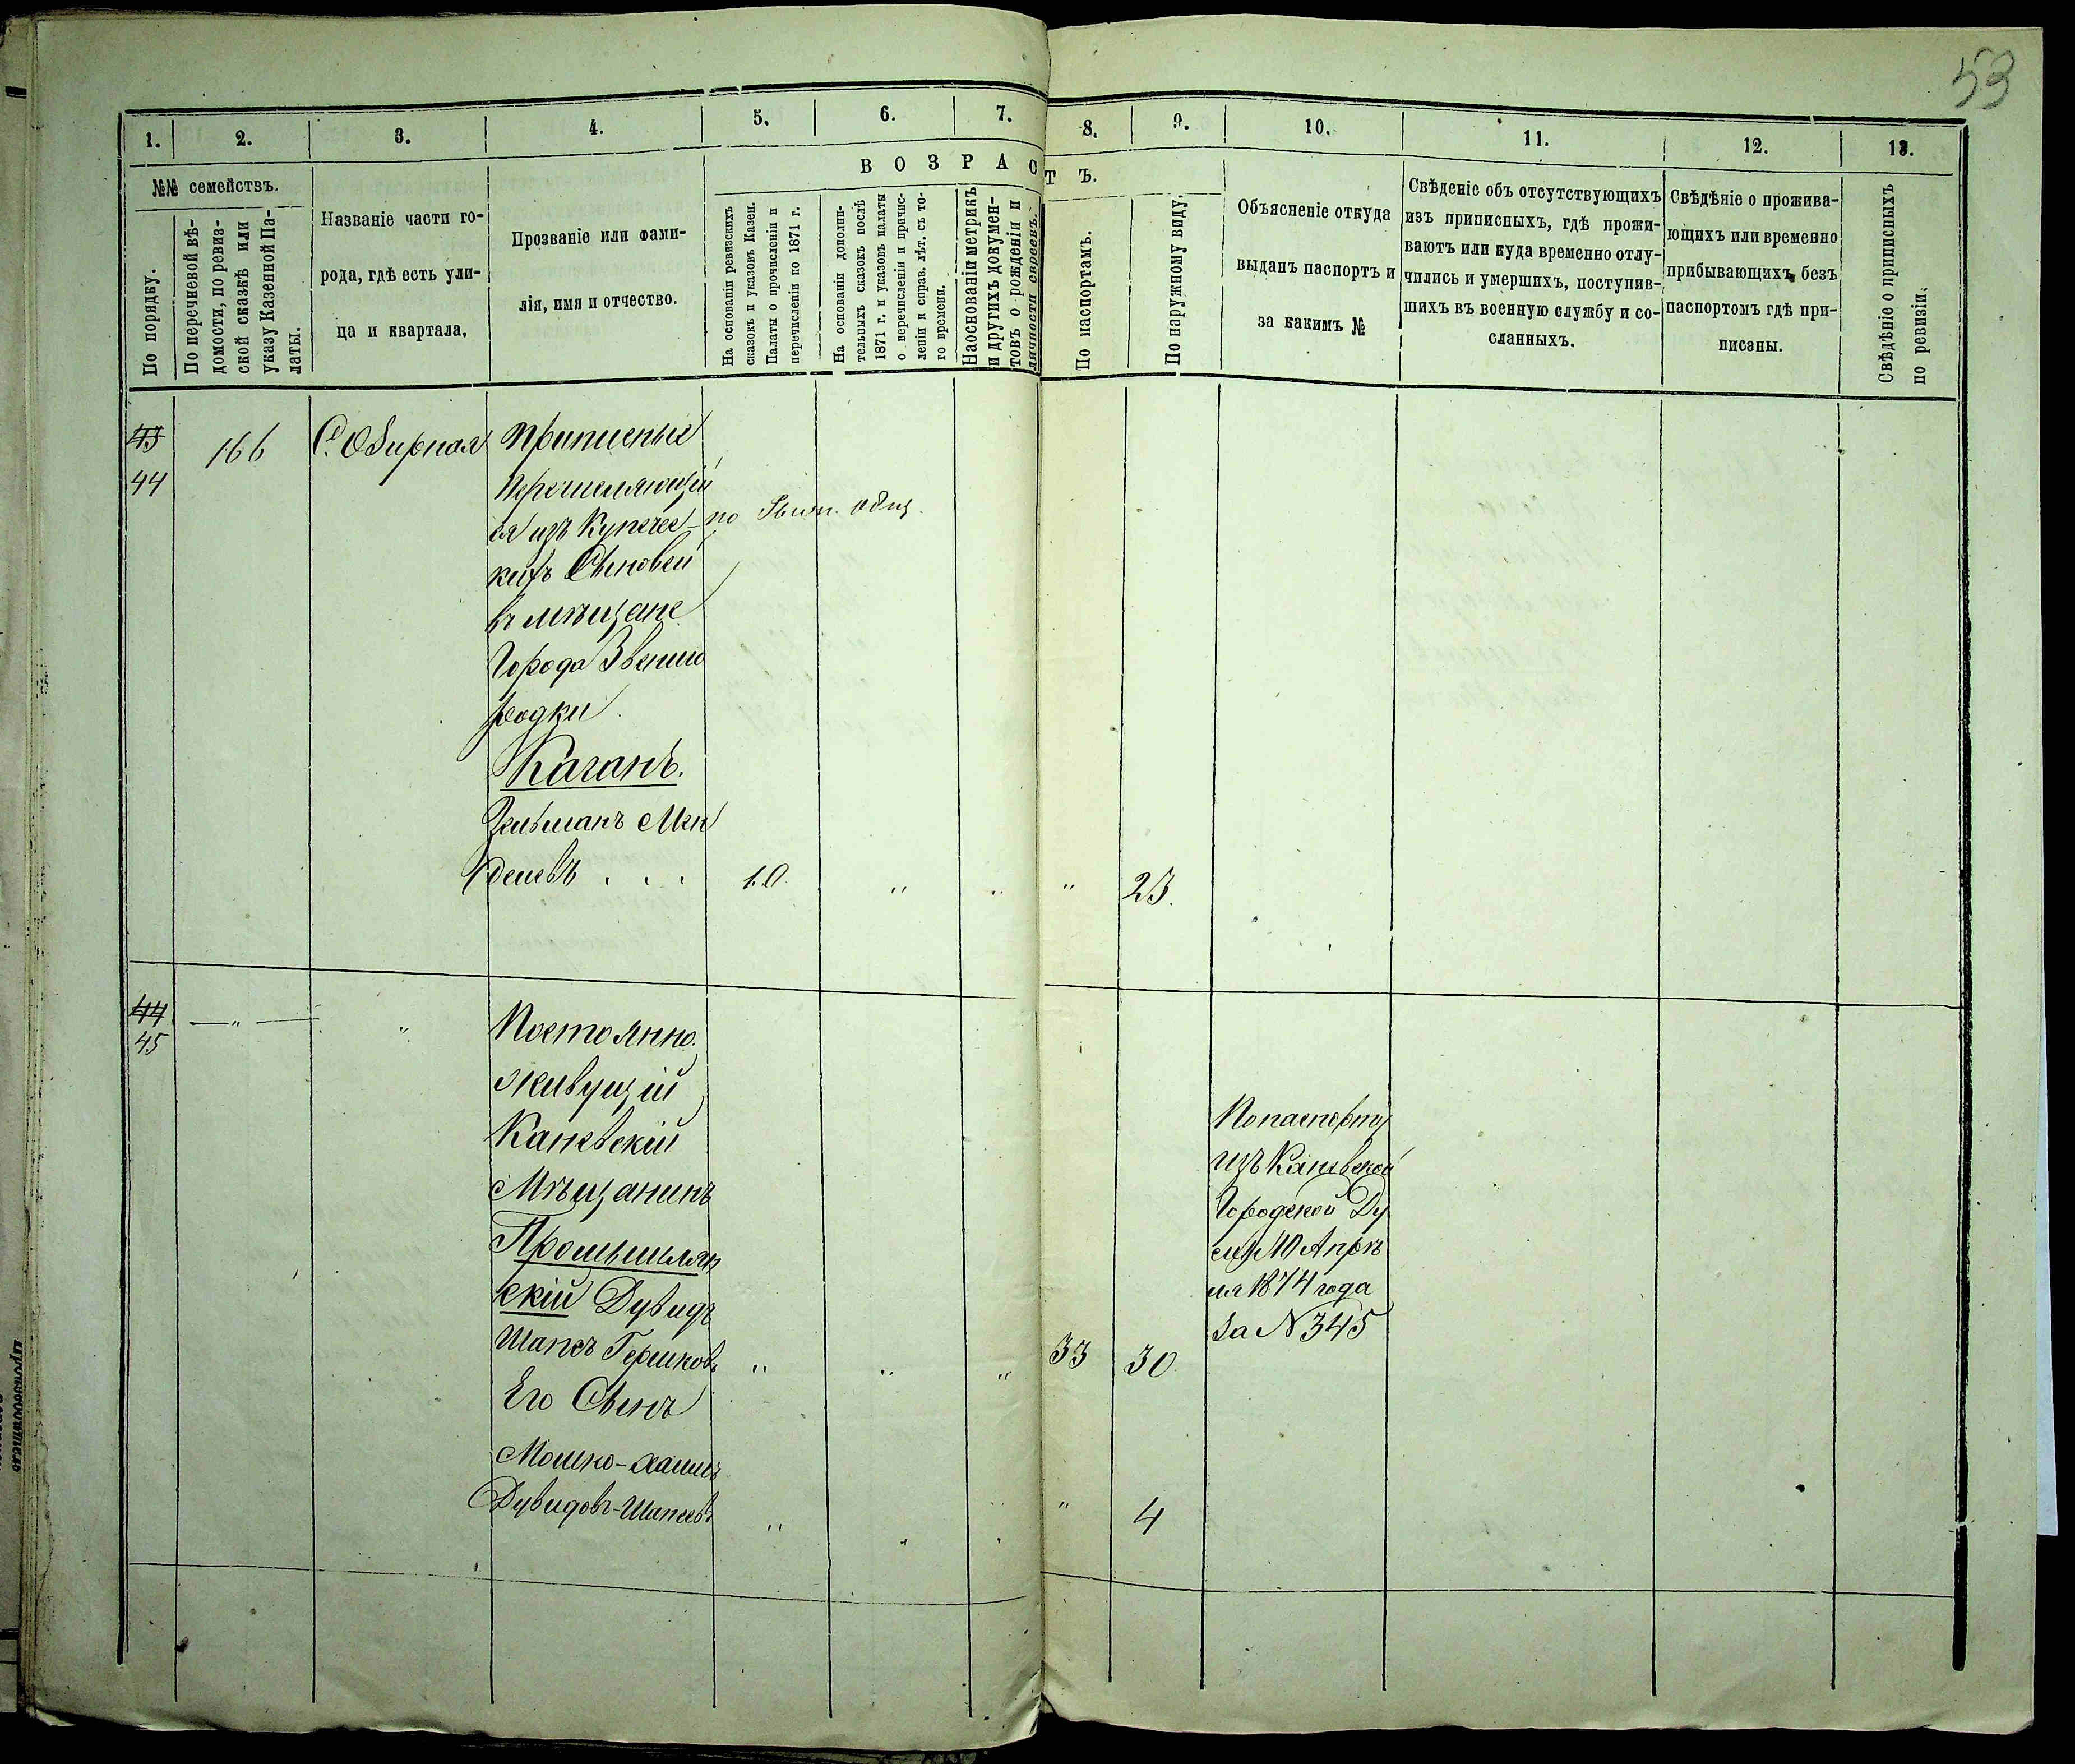 53
1.
2.
3.
4.
5.
6.
7.
8.
9.
10.
11.
12.
13.
№№ семействъ.
По порядку.
По перечневой вѣ-
домости, по ревиз-
ской сказкѣ или
указу Казенной Па-
латы.
Названіе части го-
рода, гдѣ есть ули-
ца и квартала.
Прозваніе или фами-
лія, имя и отчество.
ВОЗРАСТЪ.
На основаніи ревизскихъ
сказокъ и указовъ Казен.
Палаты о прочисленіи и
перечисленіи по 1871 г.
На основаніи дополни-
тельныхъ сказокъ послѣ
1871 г. и указовъ палаты
о перечисленіи и причис-
леніи и справ. лѣт. съ то-
го времени.
На основаніи метрикъ
и другихъ докумен-
товъ о рожденіи и
личности евреевъ.
По паспортамъ.
По наружному виду.
Объясненіе откуда
выданъ паспортъ и
за какимъ №
Свѣденіе объ отсутствующихъ
изъ приписныхъ, гдѣ прожи-
ваютъ или куда временно отлу-
чились и умершихъ, поступив-
шихъ въ военную службу и со-
сланныхъ.
Свѣдѣніе о прожива-
ющихъ или временно
прибывающихъ безъ
паспортомъ гдѣ при-
писаны.
Свѣдѣніе о приписныхъ
по ревизіи.
43
44
166
С. Озирная
Приписные
Перешеляющій
ся изъ Купечес-
кихъ Сыновей
въ мѣщане
Города Звениго
родки
по
Каганъ.
Зельманъ Мен
делевъ . . .
10.
"
"
"
23.
44
45
— " —
"
Постоянно
живущій
Каневскій
Мѣщанинъ
Промышлян
скій Дувидъ
Шапсъ Гершковъ
"
"
"
33
30.
По паспорту
изъ Каневской
Городской Ду
мы 10 Апрѣ
ля 1874 года
за N 345
Его Сынъ
Мошко-Хаимъ
Дувидовъ-Шапсевъ
"
"
"
"
4